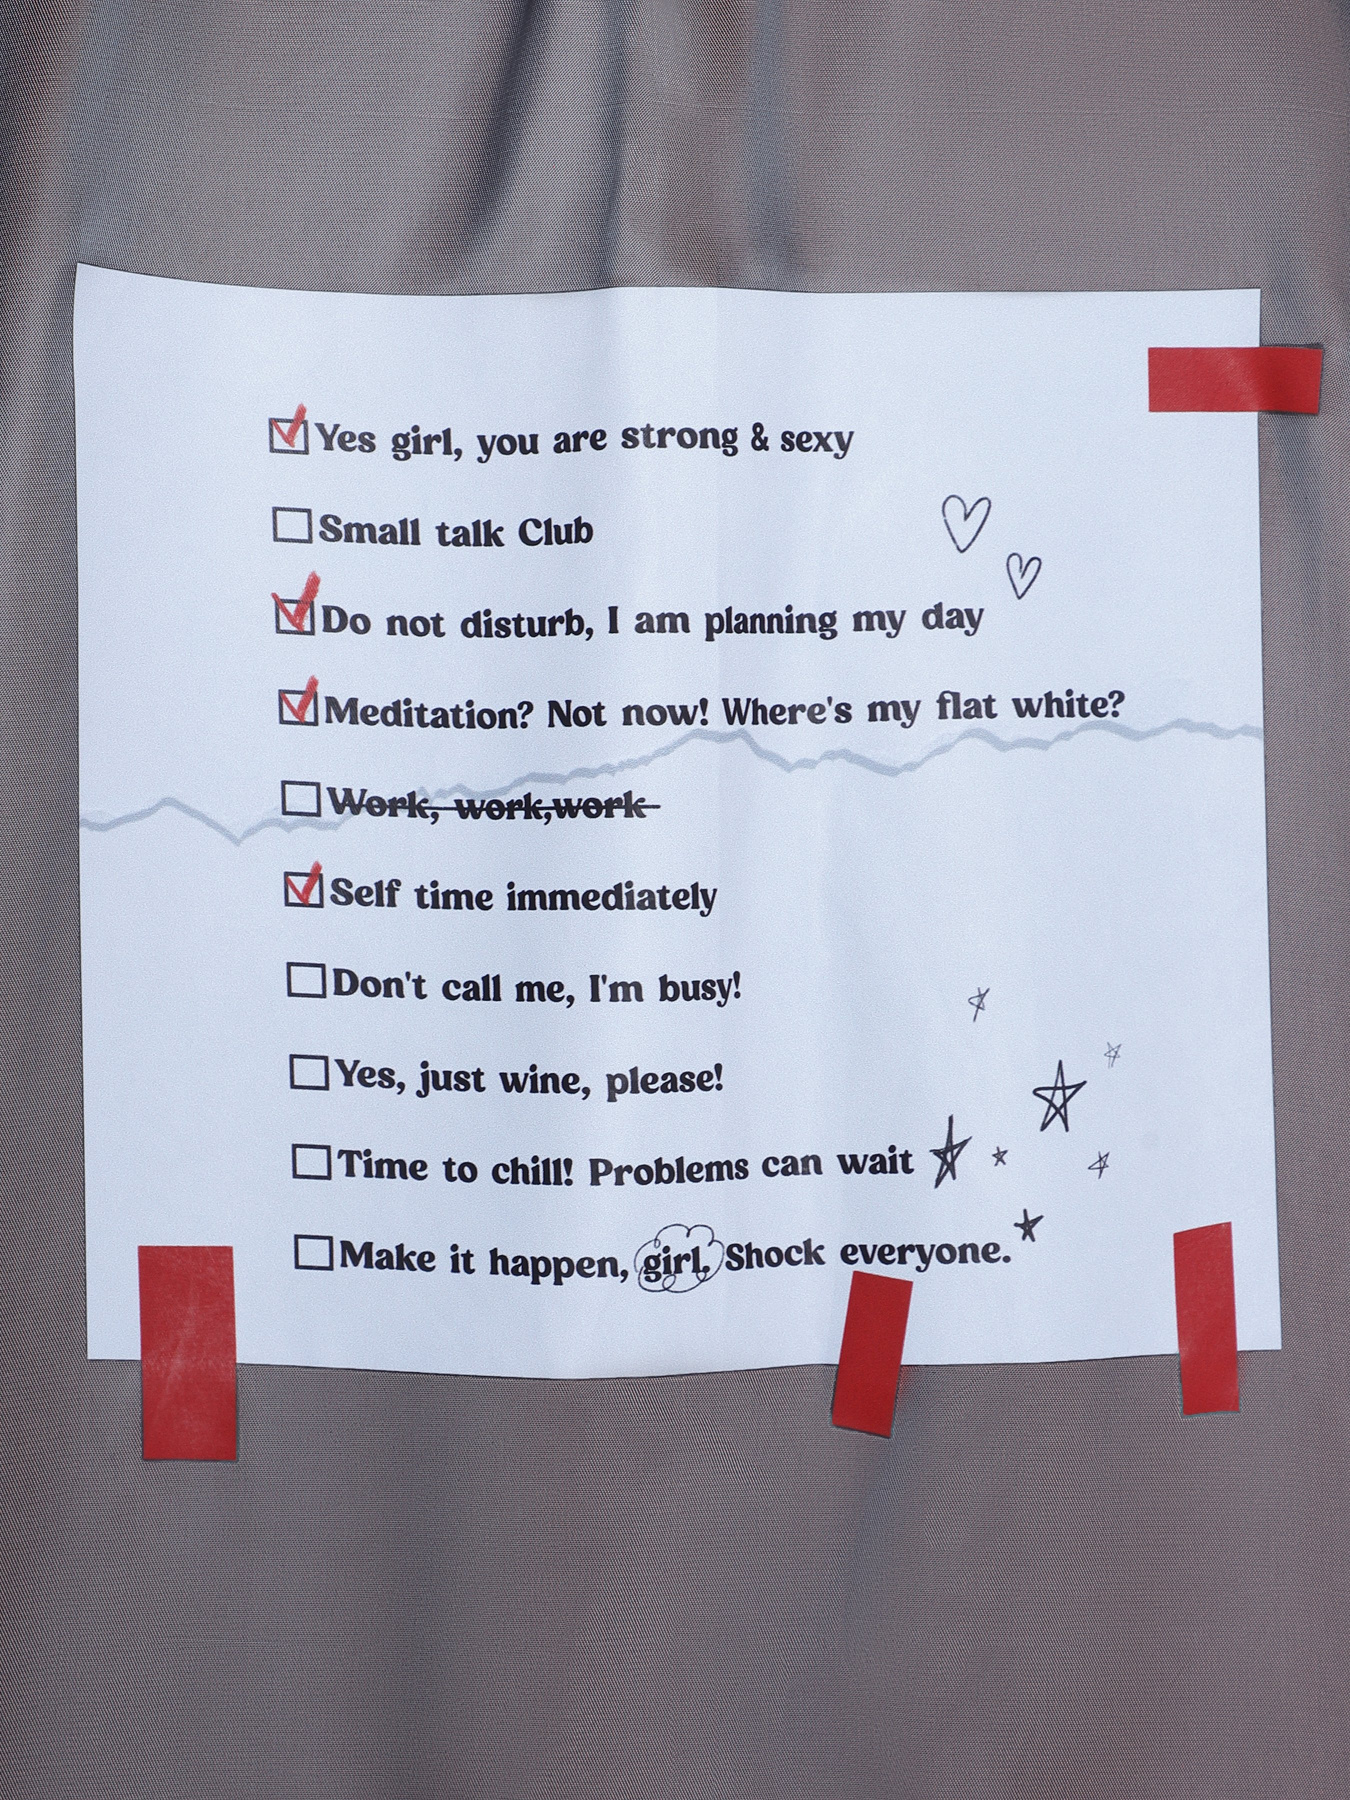 Yes girl, you are strong & sexy
Small talk Club
Do not disturb, I am planning my day
Meditation? Not now! Where's my flat white?
Work, work,work
Self time immediately
Don't call me, I'm busy!
Yes, just wine, please!
Time to chill! Problems can wait
Make it happen, girl. Shock everyone.